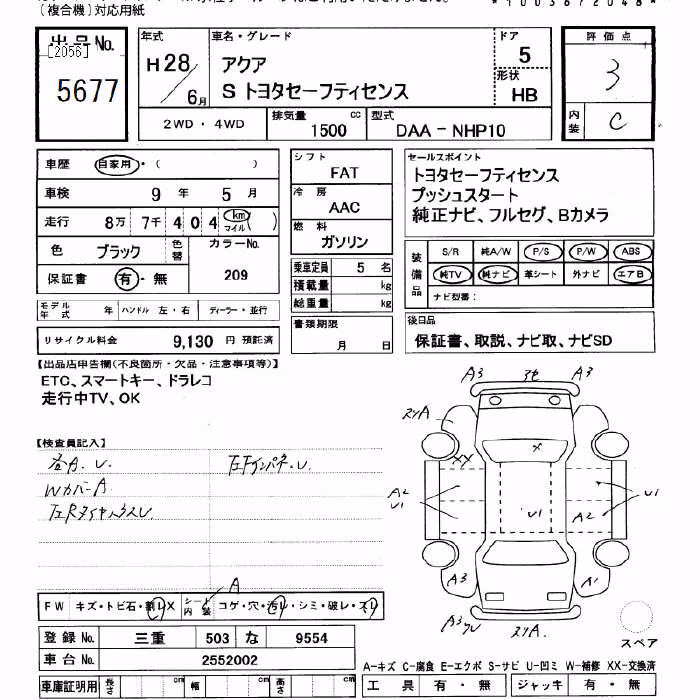 (複合機)対応用紙
出品No.
[2056]
5677
年式
H28/6月
車名・グレード
アクア
S トヨタセーフティセンス
ドア
5
形状
HB
評価点
3
内装
C
2WD・4WD
排気量
1500 cc
型式
DAA-NHP10
車歴 自家用・( )
車検 9年 5月
走行 8万 7千 4 0 4 km マイル( )
色 ブラック 色替
カラーNo.
209
保証書 有・無
モデル年式 年 ハンドル 左・右 ディーラー・並行
リサイクル料金 9,130 円 預託済
シフト
FAT
冷房
AAC
燃料
ガソリン
乗車定員 5 名
積載量 kg
総重量 kg
書類期限
月 日
セールスポイント
トヨタセーフティセンス
プッシュスタート
純正ナビ、フルセグ、Bカメラ
装備品
S/R 純A/W P/S P/W ABS
純TV 純ナビ 革シート 外ナビ エアB
ナビ型番:
後日品
保証書、取説、ナビ取、ナビSD
【出品店申告欄(不良箇所・欠品・注意事項等)】
ETC、スマートキー、ドラレコ
走行中TV、OK
【検査員記入】
各A.U.
WカバーA
左Fインパネ.U
A3
A3
XX
X
A2
U1
U1
U1
A2
A3
A1
FW キズ・トビ石・割レX シート内装 コゲ・穴・汚レ・シミ・破レ・スレ
A
登録No. 三重 503 な 9554
車台No. 2552002
車庫証明用 長さ cm 幅 cm 高さ cm
スペア
A-キズ C-腐食 E-エクボ S-サビ U-凹ミ W-補修 XX-交換済
工具 有・無 ジャッキ 有・無